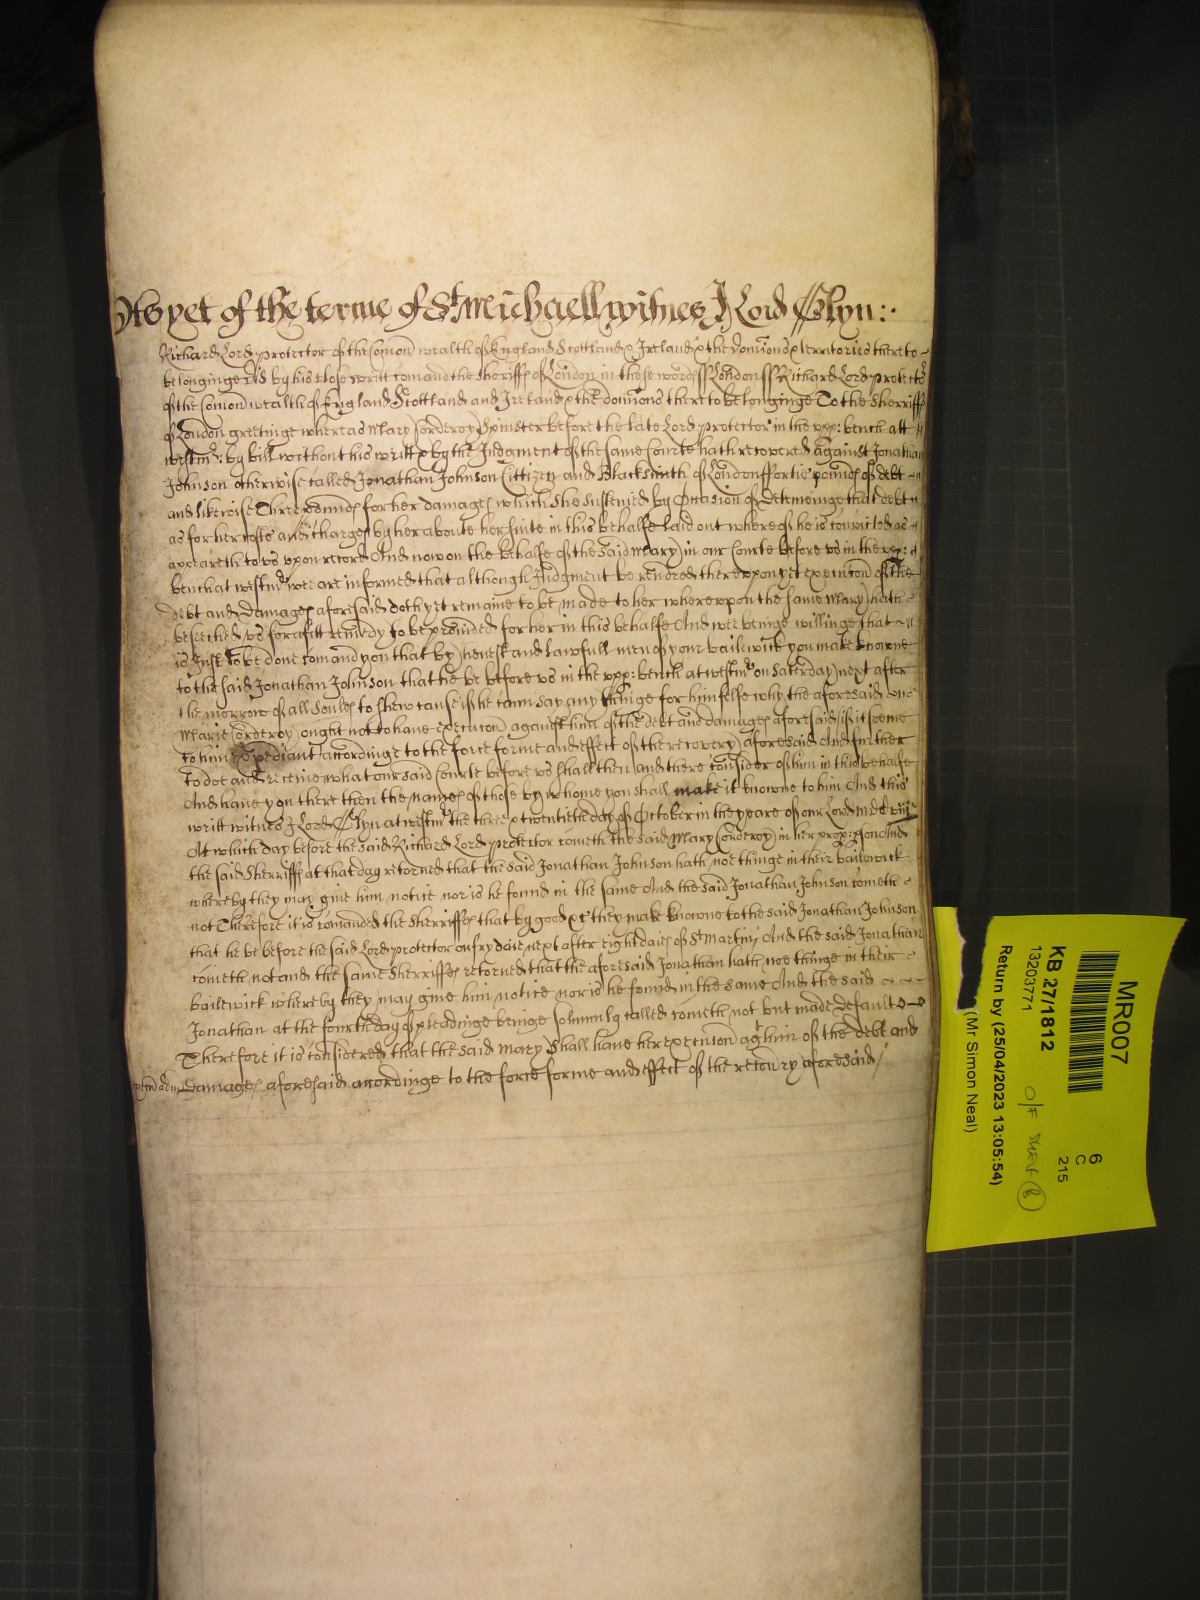 As yet of the terme of St Michaell witnes J Lord Glyn :.
Richard Lord protector of the Comon wealth of England Scottland & Ireland & the Domions & territories thereto
belonginge did by his close writt comand the sheriffs of London in these words ss London ss Richard Lord protector
of the Comon wealth of England Scottland and Ireland & the domions there to belonginge To the sherriffs
of London greetinge whereas Mary Corderoy Spinster before the late Lord protector in the upp: bench att
westmr: by bill without his writt & by the Judgment of the same Courte hath recovered against Jonathan
Johnson otherwise called Jonathan Johnson Cittizen and Blacksmith of London ffortie pounds of debt
and likewise Three pounds for her damages which she susteined by Occasion of deteineinge that debt
as for her costs and charges by her aboute her suite in this behalfe laid out where of he is convicted as
appeareth to us upon record And now on the behalfe of the said Mary in our Courte before us in the upp:
bench at westmr wee are informed that although Judgment be rendred thereupon yet execution of the
debt and damages aforesaid doth yet remaine to be made to her whereupon the same Mary hath
beseeched us for a fitt remedy to be provided for her in this behalfe And wee beinge willinge that
is Just to be done comand you that by honest and lawfull men of your bailewick you make knowne
to the said Jonathan Johnson that he be before us in the upp: bench at westmr on Saterday next after
the morrow of all Soules to shew cause if he cann say any thinge for himselfe why the aforesaid
Marie Corderoy ought not to have execution against him of the debt and damages aforesaid if it seeme
to him Expediant accordinge to the force forme and effect of the recovery aforesaid And further
to doe and receive what our said Courte before us shall then and there consider of him in this behalfe
And have you there then the names of those by whome you shall make it knowne to him And this
writt witnes J Lord Glyn at westmr the three & twentieth day of October in the yeare of our Lord mdclviij
At which day before the said Richard Lord protector cometh the said Mary Corderoy in her prop: pson And
the said Sherriffs at that day retorned that the said Jonathan Johnson hath noe thinge in their bailewick
whereby they may give him notice nor is he found in the same And the said Jonathan Johnson cometh
not Therefore it is comanded the Sherriffes that by good &c they make knowne to the said Jonathan Johnson
that he be before the said Lord protector on fryday next after eight daies of St Martin And the said Jonathan
cometh not and the same Sherriffes retorned that the aforesaid Jonathan hath noe thinge in their
bailewick whereby they may give him notice nor is he found in the same And the said
Jonathan at the fourth day of pleadinge beinge solemnly called cometh not but made default
Therefore it is considered that the said Mary shall have her execution agt him of the debt and
damages aforesaid accordinge to the force forme and effect of the recovry aforesaid
MR007
6
C
215
KB 27/1812
13203771
Return by (25/04/2023 13:05:54)
(Mr Simon Neal)